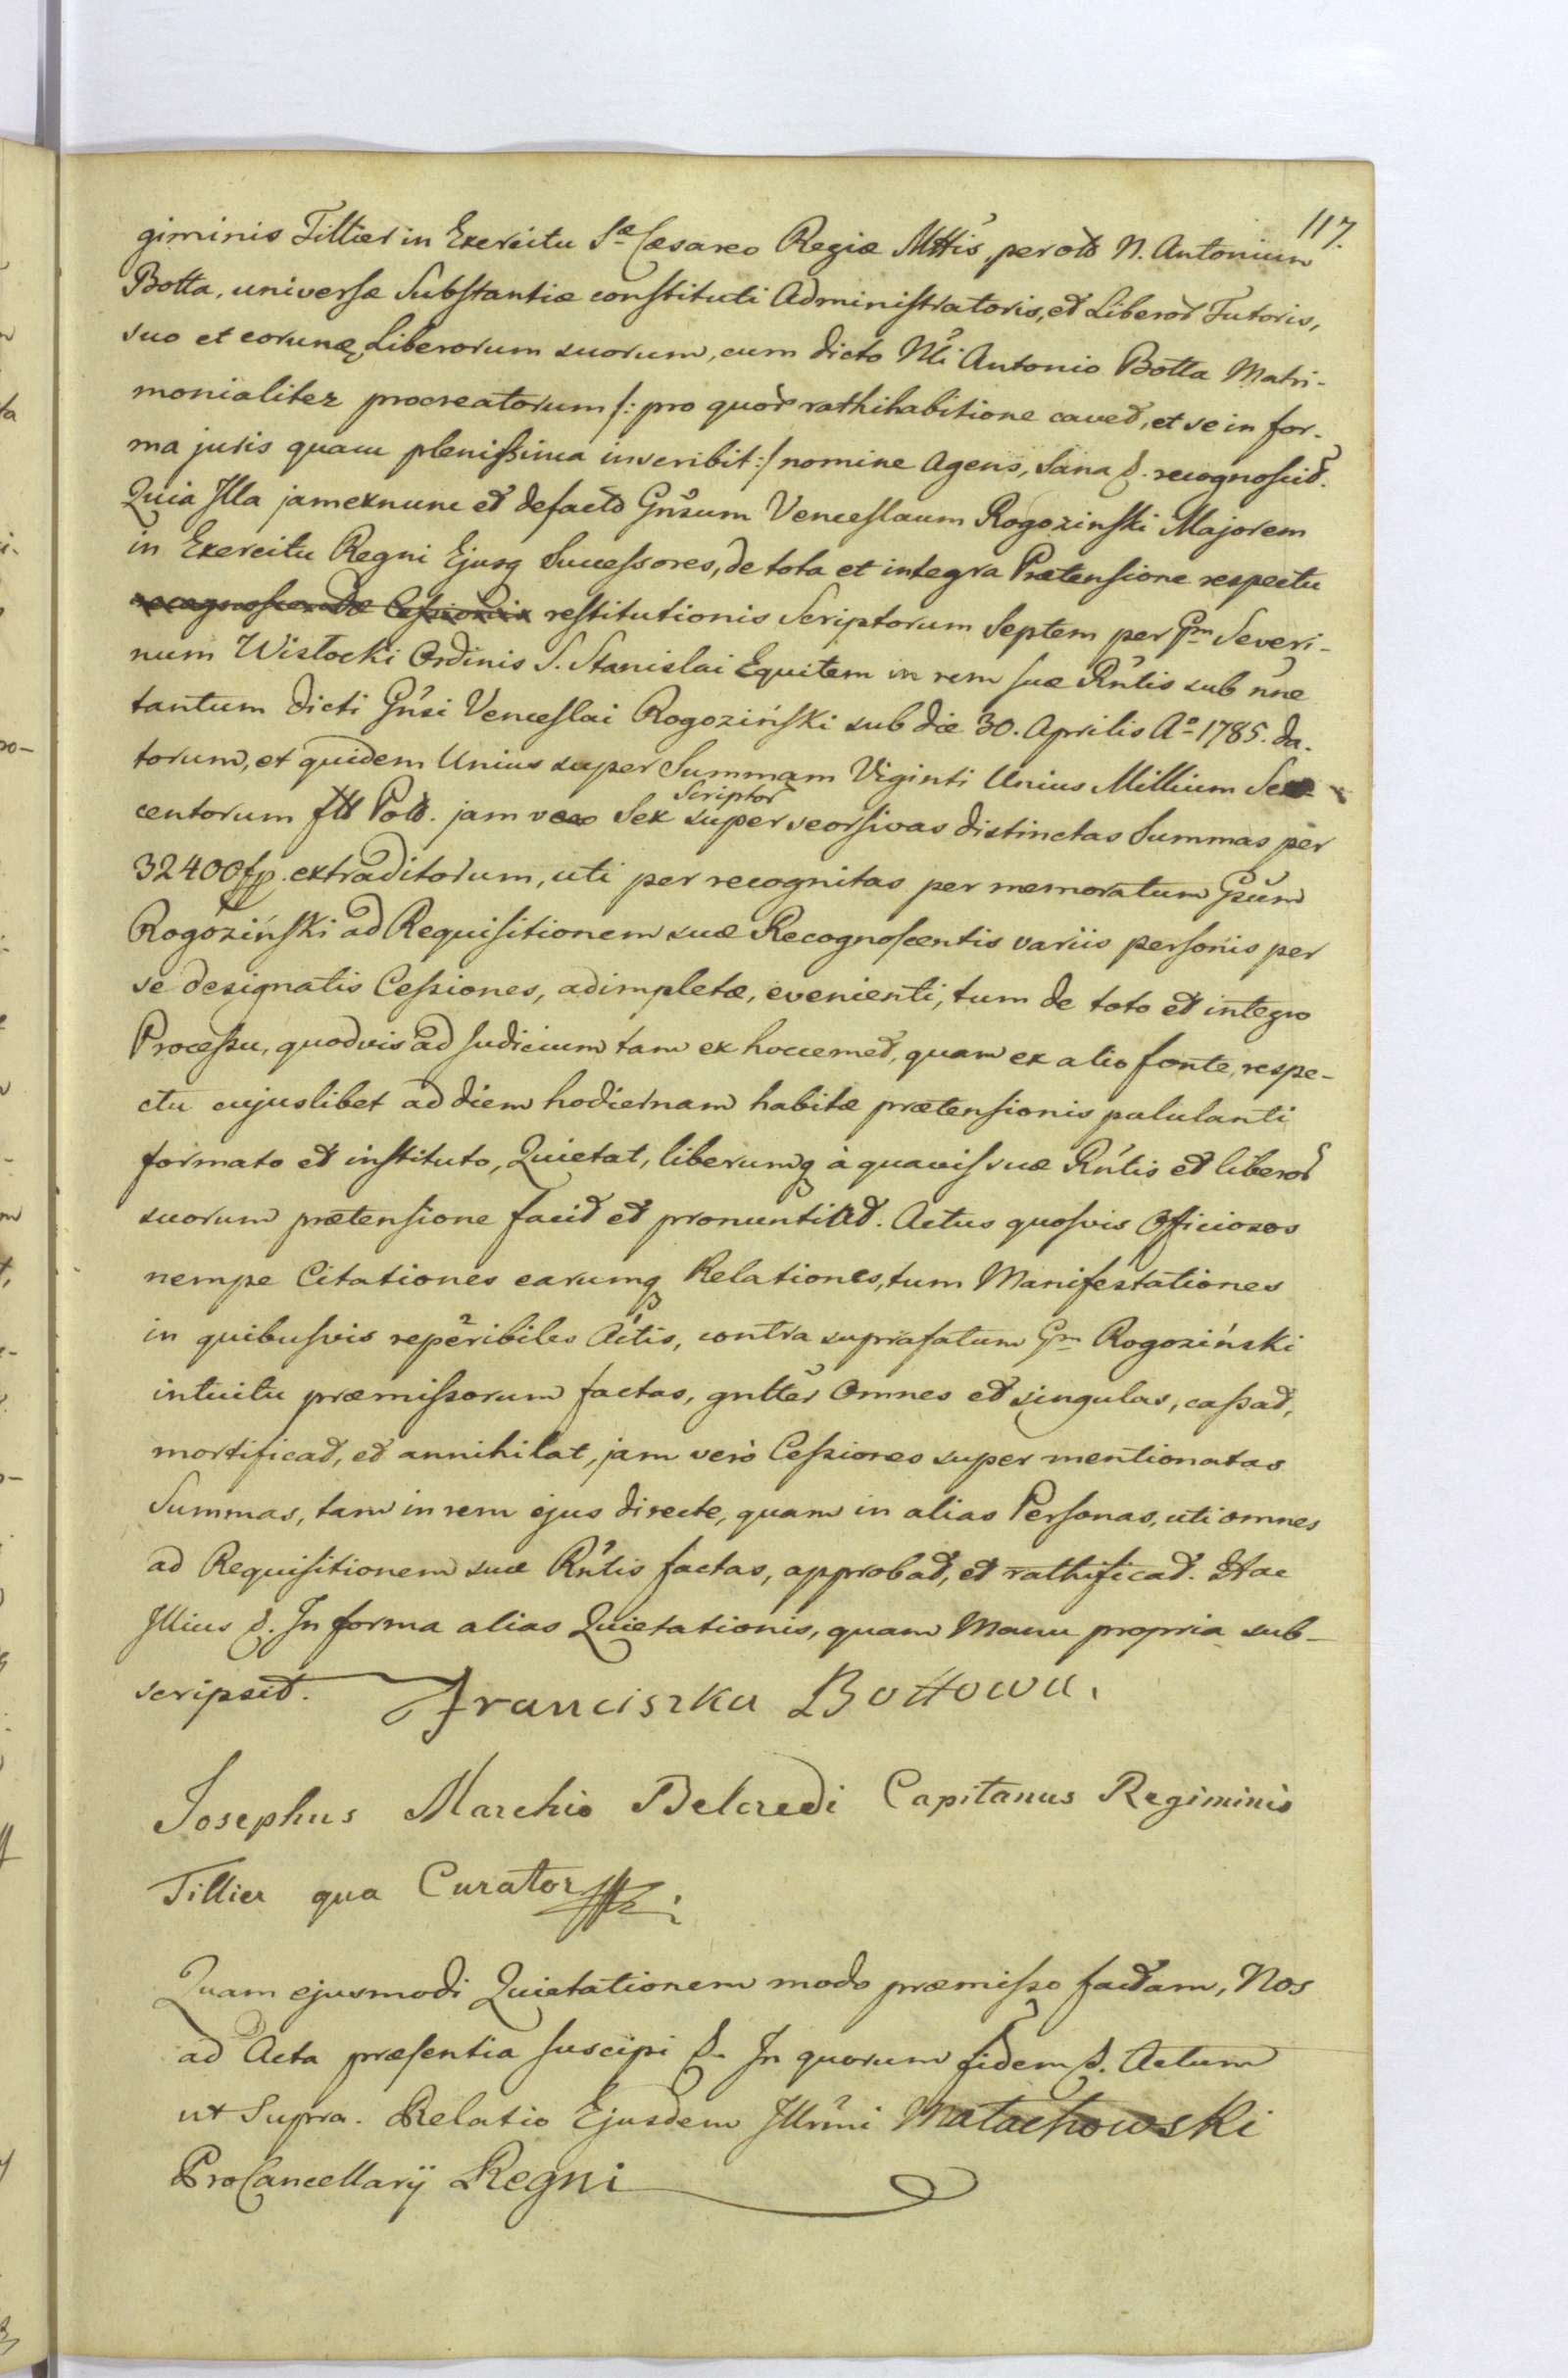 117.
giminis Tillier in Exercitu S.æ Cæsareo Regiæ Mttis, per olb N. Antonium
Botta, universæ Substantiæ constituti Administratoris, et Liberor Tutoris,
suo et eorunq Liberorum suorum, cum dicto Mci Antonio Botta Matri-
monialiter procreatorum /: pro quor rathihabitione cavet, et se in for-
ma juris quam plenissima inscribit :/ nomine agens, Sana &. recognoscit.
Quia Illa jam exnunc et de facto Gnsum Venceslaum Rogozinski Majorem
in Exercitu Regni Ejusq Successores, de tota et integra Prætensione respectu
recognoscendæ Cessionis restitutionis Scriptorum Septem per Gm Severi-
num Wisłocki Ordinis S. Stanislai Equitem in rem suæ Rntis sub nne
tantum dicti Gnsi Venceslai Rogoziński sub die 30. Aprilis Ao 1785. da-
torum, et quidem Unius super Summam Viginti Unius Millium Sex-
centorum fl Pol. jam vero Sex Scriptor super seorsivas distinctas Summas per
32400 fp. extraditorum, uti per recognitas per memoratum Gsum
Rogoziński ad Requisitionem suæ Recognoscentis variis personis per
se designatis Cessiones, adimpletæ, evenienti, tum de toto et integro
Processu, quodvis ad Judicium tam ex hoccemet, quam ex alio fonte, respe-
ctu cujuslibet ad diem hodiernam habitæ prætensionis pululanti
formato et instituto, Quietat, liberumq à quavis suæ Rntis et liberor
suorum prætensione facit et pronuntiat. Actus quosvis Officiosos
nempe Citationes earumq Relationes, tum Manifestationes
in quibusvis reperibiles Actis, contra suprafatum Gm Rogoziński
intuitu præmissorum factas, gntter omnes et singulas, cassat,
mortificat, et annihilat, jam verò Cessiones super mentionatas
Summas, tam in rem ejus directe, quam in alias Personas, uti omnes
ad Requisitionem suæ Rntis factas, approbat, et rathificat. Hac
Illius &. In forma alias Quietationis, quam Manu propria sub-
scripsit. Franciszka Bottowa.
Josephus Marchio Belcredi Capitanus Regiminis
Tillier qua Curator
Quam ejusmodi Quietationem modo præmisso factam, Nos
ad Acta præsentia suscipi &. In quorum fidem &. Actum
ut Supra. Relatio Ejusdem Illrmi Małachowski
ProCancellarij Regni